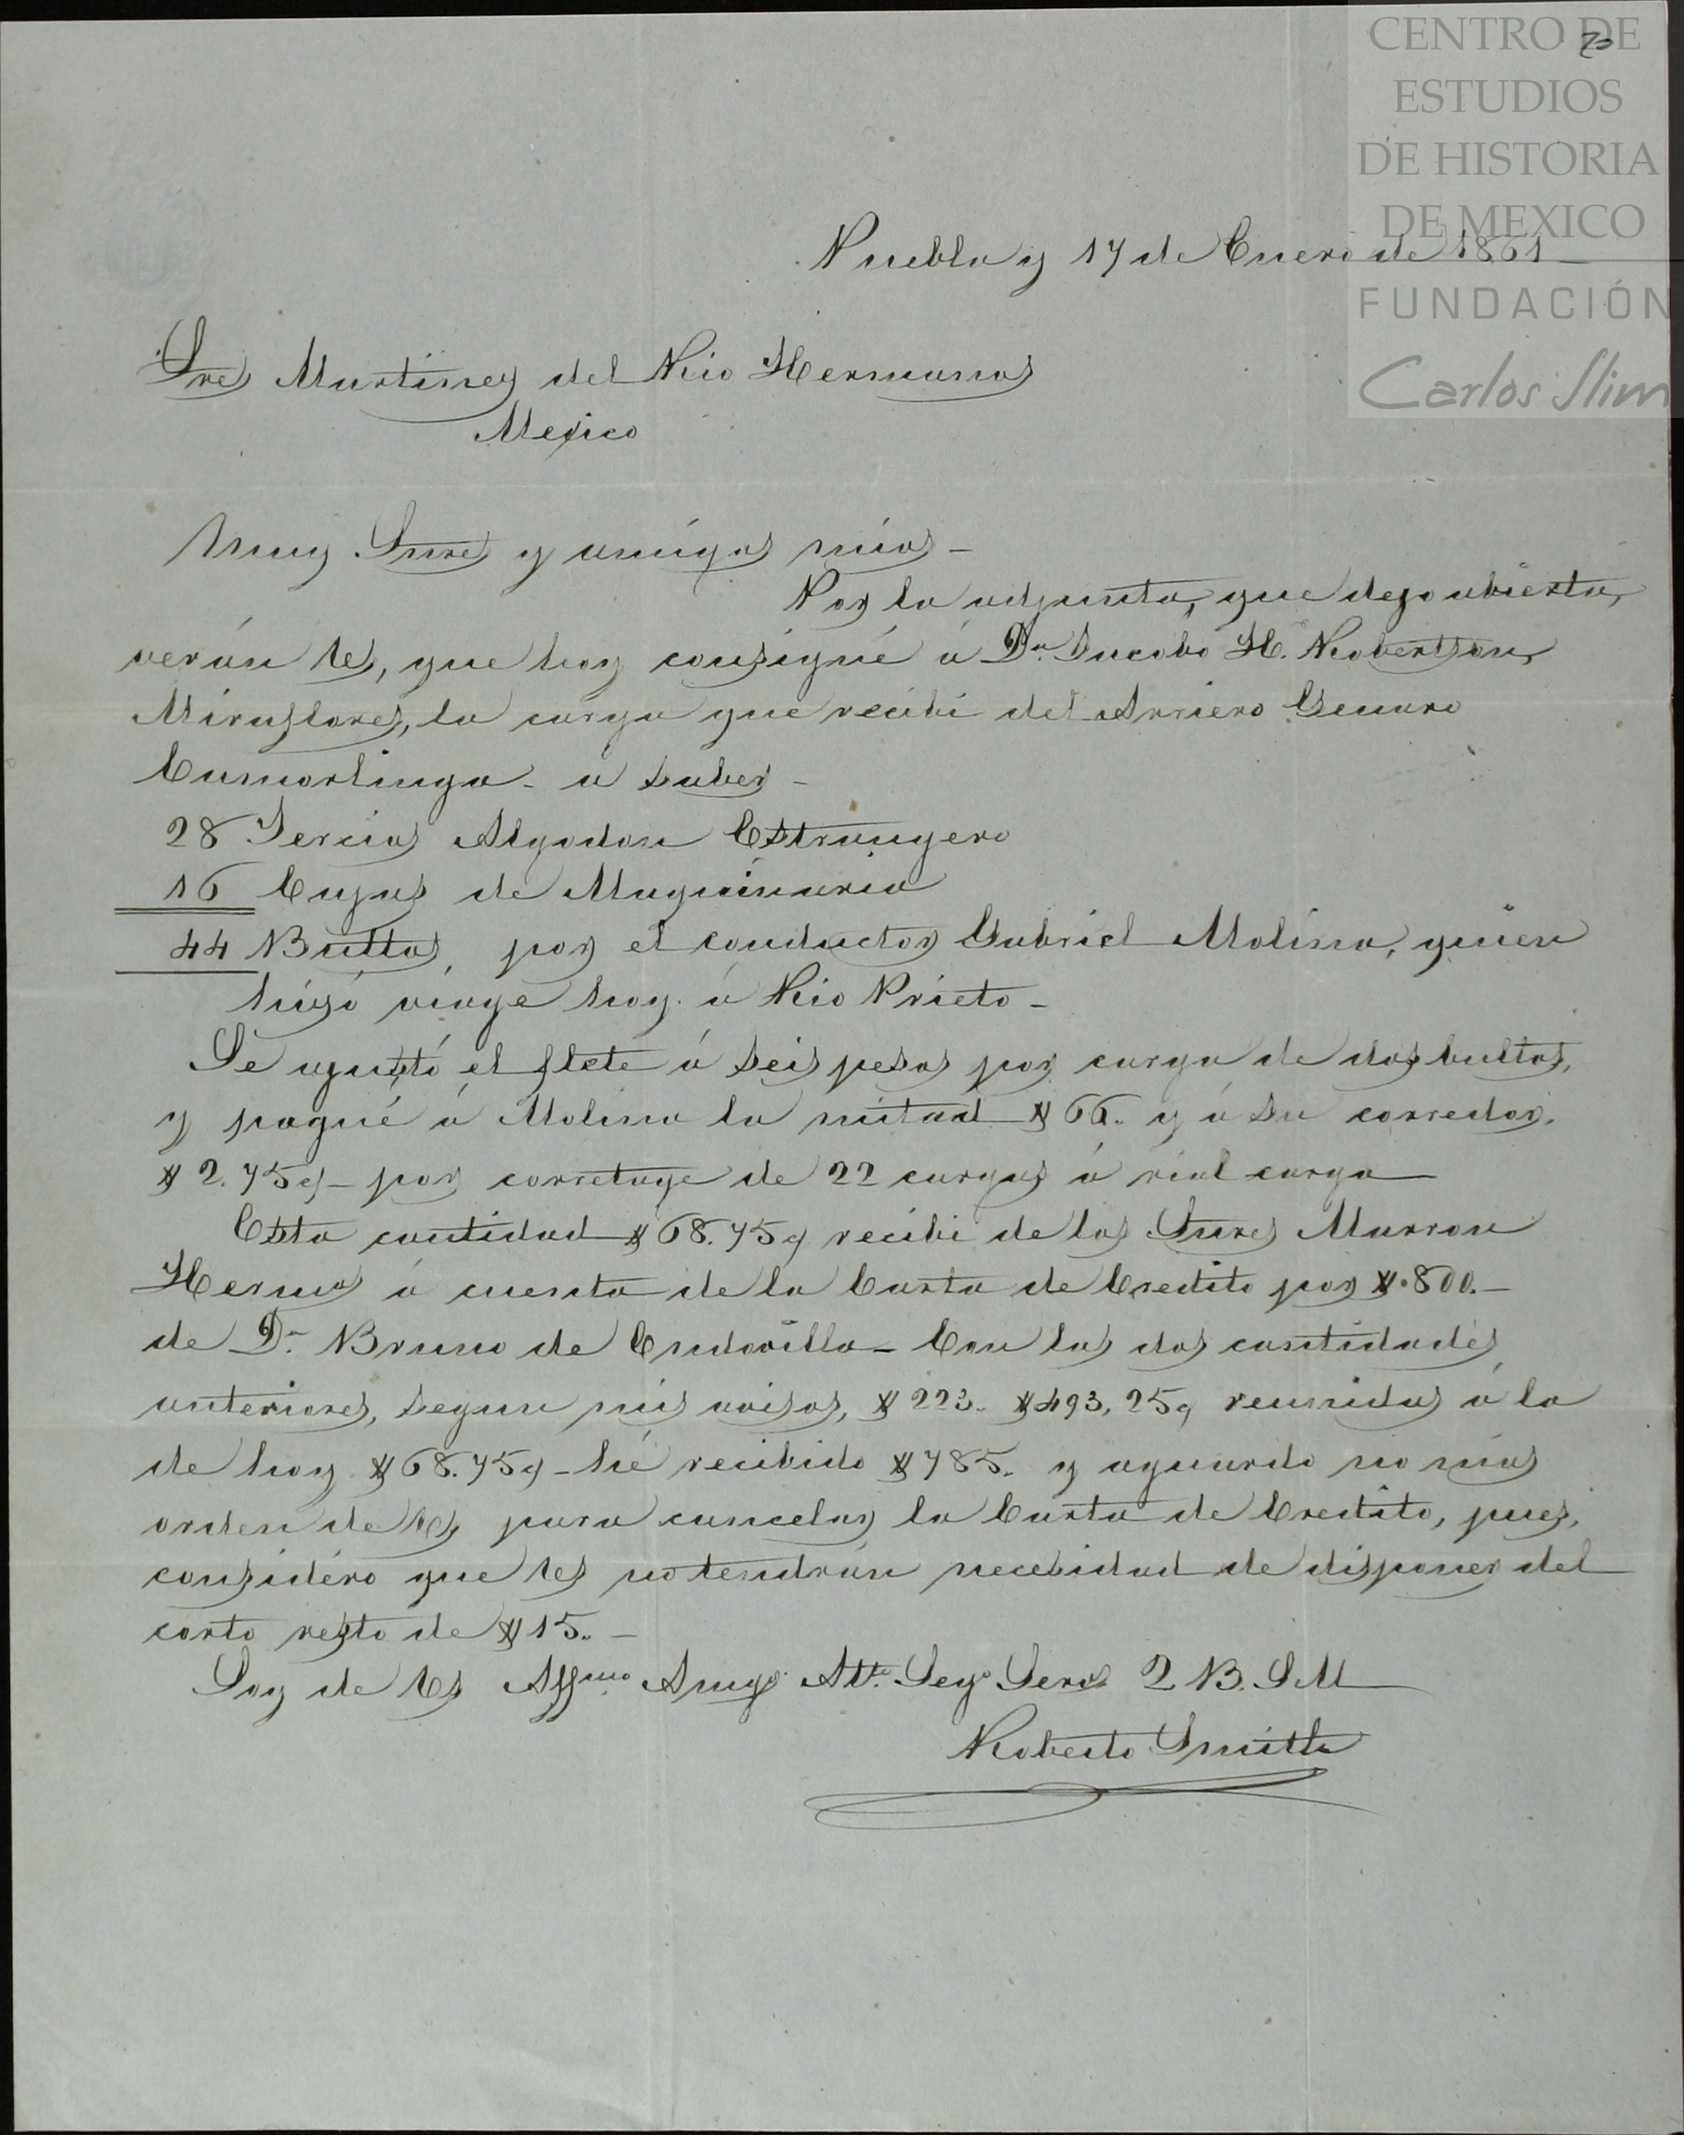 CENTRO DE
ESTUDIOS
DE HISTORIA
DE MEXICO
FUNDACIÓN
Carlos Slim
Puebla y 17 de Enero de 1861
Sres Martinez del Rio Hermanos
Mexico
Muy Sres y amigos mios -
Por la adjunta, que dejo abierta,
verán Ves, que hoy consigné á Dn. Jacobo H. Robertson,
Miraflores, la carga que recibi del Arriero Genaro
Camarlinga - a saber -
28 Tercios Algodon Estrangero
16 Cajas de Maquinaria
44 Bultos, por el conductor Gabriel Molina, quien
hizó viage hoy á Rio Prieto -
Se ajustó el flete á seis pesos por carga de dos bultos,
y pagué á Molina la mitad $66. y á su corredor,
$2.75c - por corretage de 22 cargas á rial carga
Esta cantidad $68.75c recibi de los Sres Marron
Hermos á cuenta de la Carta de Credito por $.800. -
de Dn. Bruno de Endavilla - Con las dos cantidades
anteriores, segun mis avisos, $223. $493,25c reunidas á la
de hoy $68.75c - hé recibido $785. y aguardo no más
orden de Ves para cancelar la Carta de Credito, pues,
considéro que Ves no tendrán necesidad de disponer del
corto resto de $15. -
Soy de Ves Affmo Amgo. Atto. Segº Servr Q B. S M
Roberto Smith